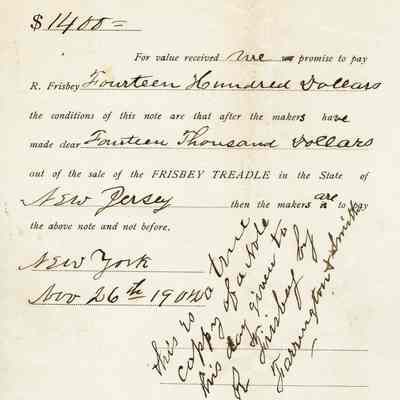 $1400=
For value received we promise to pay
R. Frisbey Fourteen Hundred Dollars
the conditions of this note are that after the makers have
made clear Fourteen Thousand Dollars
out of the sale of the FRISBEY TREADLE in the State of
New Jersey then the makers are to pay
the above note and not before.
New York
Nov 26th 190
This is true
coppy of a note
this day given to
R Frisbey by
Farrington & Smith